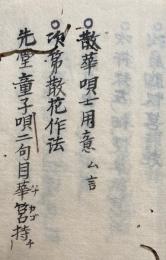 ○散華唄士用意ム言
○次第散花作法
先堂童子唄二句目華筥持
ハナ カゴ チ